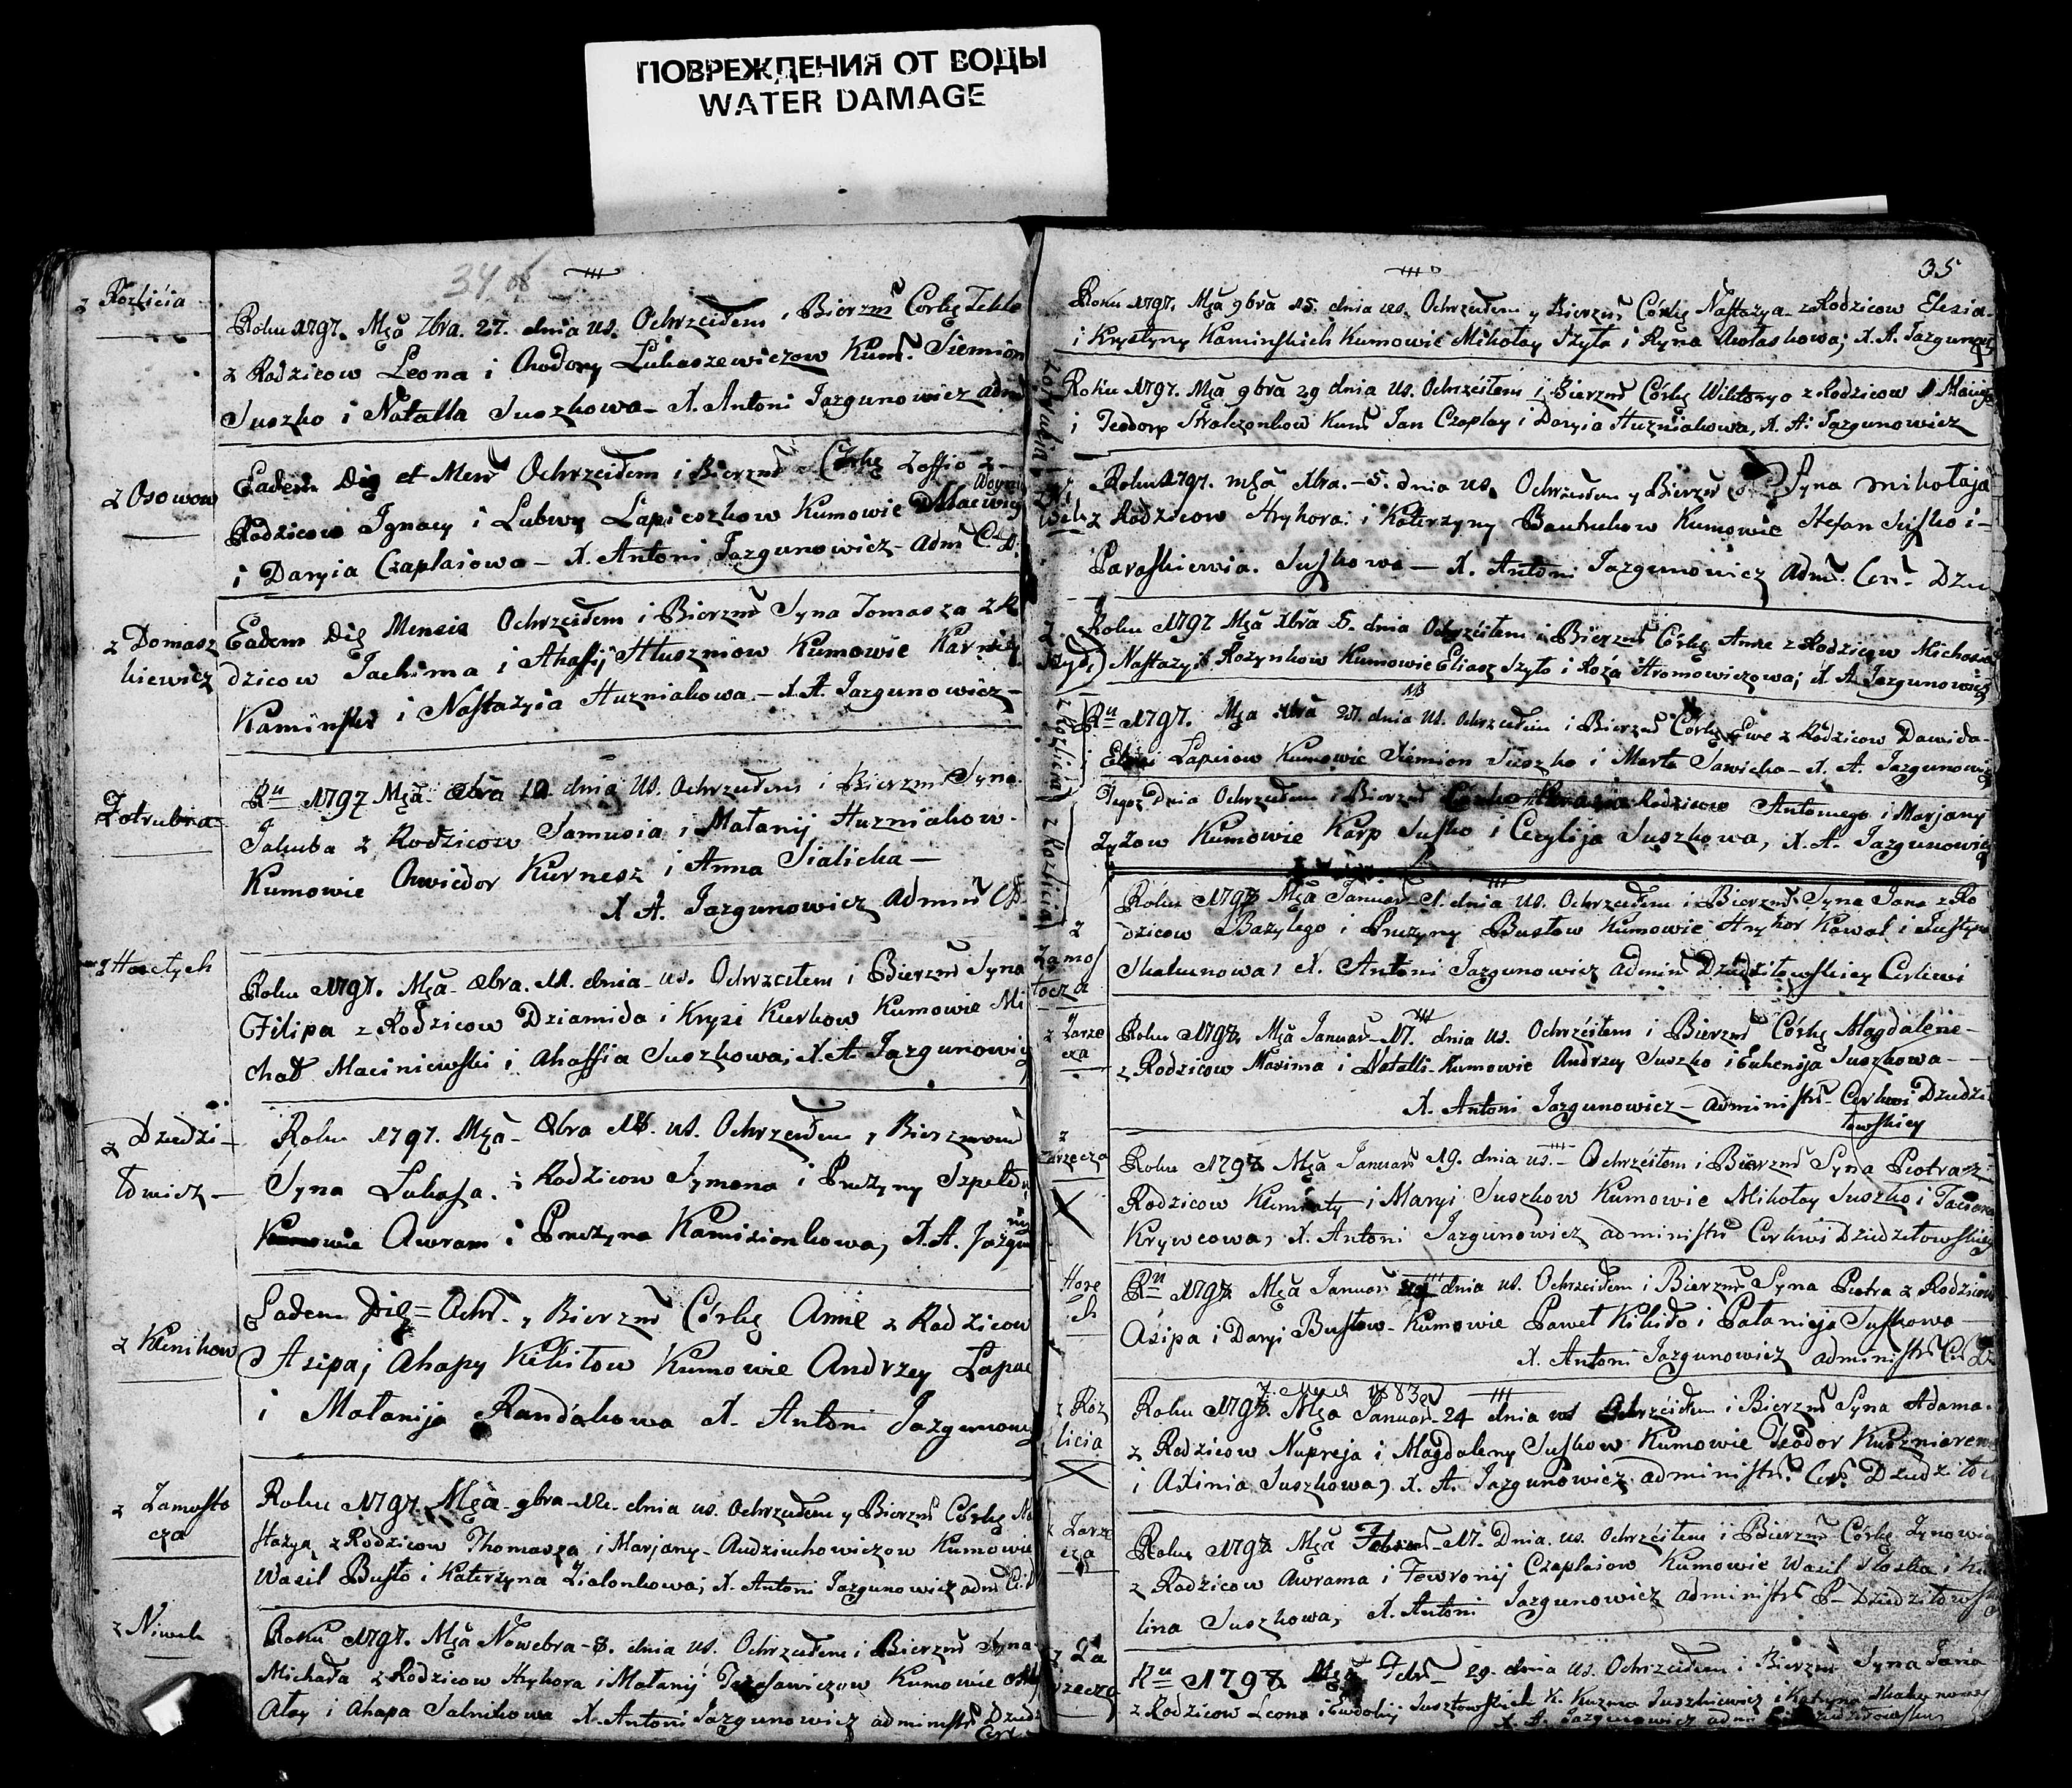 ПОВРЕЖДЕНИЯ ОТ ВОДЫ
WATER DAMAGE
34 об
z Rozlicia
Roku 1797. Mça 7bra. 27. dnia us. Ochrzciłem i Bierzm Corkę Tekle
z Rodzicow Leona i Chodory Lukaszewiczow Kum. Siemion
Suszko i Natalla Suszkowa – X. Antoni Jazgunowicz adm
z Osowow
Eadem Die et Men Ochrzciłem i Bierzm Corkę Zoffio z
Rodzicow Ignacy i Lubwy Lapieszkow Kumowie Maciwiey
i Daryia Czaplaiowa – X. Antoni Jazgunowicz – Adm C. D.
z Domasz
kiewicz
Eadem Die Mensis Ochrzciłem i Bierzm Syna Tomasza z R
dzicow Jachima i Ahafij Hluszniow Kumowie Karniey
Kaminski i Nastazyia Huzniakowa – X. A. Jazgunowicz –
Zatrubia
Ru 1797 Mça 8bra 10 dnia us. Ochrzciłem i Bierzm Syna
Jakuba z Rodzicow Samusia i Matanij Huzniakow.
Kumowie Chwiedor Kurnesz i Anna Sialicka –
X A. Jazgunowicz Admin CD
z Horetych
Roku 1797. Mça 8bra. 11. dnia us. Ochrzciłem i Bierzm Syna
Filipa z Rodzicow Dziamida i Krysi Kurkow Kumowie Mi
chał Maciniewski i Ahaffia Suszkowa; X. A. Jazgunowicz
z Dziedzi –
łowicz –
Roku 1797. Mça 8bra 18. us. Ochrzciłem y Bierzmow
Syna Lukasza. z Rodzicow Symona i Pruzyny Szpeld
Kumowie Awram i Pruzyna Kamisionkowa, X. A. Jazgu
z Klenikow
Eadem Die = Ochr. y Bierzm Córkę Anne z Rodzicow
Asipa i Ahapy Kikiłow Kumowie Andrzey Lapac
i Matanija Randakowa X. Antoni Jazgunowicz
z Zamosto
cza
Roku 1797. Mça 9bra 12. dnia us. Ochrzciłem y Bierzm Córkę Na
stazyą z Rodzicow Thomasza i Marjany Audziuchowiczow Kumowie
Wasil Busło i Katerzyna Zialonkowa; X. Antoni Jazgunowicz adm
z Niwek
Roku 1797. Mça Nowebra 8. dnia us. Ochrzciłem i Bierzm Syna
Michała z Rodzicow Hryhora i Matanij Tarasawiczow Kumowie
Atay i Ahapa Salnikowa X. Antoni Jazgunowicz administr Dziedz
35
Roku 1797. Mça 9bra 15. dnia us. Ochrzciłem y Bierzm Córkę Nastazya z Rodzicow Elesia
i Krystyny Kaminskich Kumowie Mikołay Szyła i Ryna Awłaskowa; X. A. Jazgunowicz
Roku 1797. Mça 9bra 29 dnia us. Ochrzciłem i Bierzm Córkę Wiktoryo z Rodzicow
i Teodory Stralczonkow Kum Jan Czaplay i Daryia Huzniakowa, X. A. Jazgunowicz
Roku 1797. mça xbra. – 5. dnia us. Ochrzciłem y Bierzm Syna mikołaja
z Rodzicow Hryhora i Katerzyny Bautrukow Kumowie Stefan Suszko i –
Paraskiewia. Suszkowa – X. Antoni Jazgunowicz Adm. Cer. Dzie
Roku 1797 Mça xbra 5. dnia Ochrzciłem i Bierzm Córkę Anne z Rodzicow Michała
Nastazyi Rozynkow Kumowie Eliasz Szyło i Roża Hromowiczowa; X A Jazgunowicz
z Rozlicia
Ru 1797. Mça xbra 27. dnia us. Ochrzciłem i Bierzm Córkę Ewe z Rodzicow Dawida
i Lapciow Kumowie Siemion Suszko i Marta Sawicka – X. A. Jazgunowicz
z Rozlicia
Tegoz Dnia Ochrzciłem i Bierzm Rodzicow Antoniego i Marjany
Zyzow Kumowie Karp Suszko i Cecylija Suszkowa, X. A. Jazgunowicz
z
Zamos
tocza
Roku 1798 Mça Januar 1. dnia us. Ochrzciłem i Bierzm Syna Jana z Ro
dzicow Bazylego i Pruzyny Busłow Kumowie Hryhor Kowal i Justyna
Skakunowa, X. Antoni Jazgunowicz admin Dziedziłowskiey Cerkwi
z Zarze
cza
Roku 1798. Mça Januar 17. dnia us. Ochrzciłem i Bierzm Córkę Magdalene –
z Rodzicow Maxima i Natalli Kumowie Andrzey Suszko i Euhenija Suszkowa –
X. Antoni Jazgunowicz – administr Cerkwi Dziedzi
łowskiey
z
Zarzecza
Roku 1798 Mça Januar 19. dnia us. – Ochrzciłem i Bierzm Syna Piotra z
Rodzicow Klimiaty i Maryi Suszkow Kumowie Mikołay Suszko i Taciana
Krywcowa, X. Antoni Jazgunowicz administr Cerkwi Dziedziłowskiey
Hore
ch
Ru 1798 Mça Januar dnia us. Ochrzciłem i Bierzm Syna Piotra z Rodzicow
Asipa i Daryi Busłow Kumowie Paweł Kikiło i Patanieja Suszkowa
X. Antoni Jazgunowicz administr C. D
z Roz
licia
Roku 1798. Mça Januar 24 dnia us Ochrzciłem i Bierzm Syna Adama
z Rodzicow Nupreja i Magdaleny Suszkow Kumowie Teodor Kuszniarew
i Axinia Suszkowa, X. A. Jazgunowicz administr. Cer. Dziedziłow
z Zarze
cza
Roku 1798 Mça Febru 17. Dnia us. Ochrzciłem i Bierzm Córkę Zynowią
z Rodzicow Awrama i Fewronij Czaplaiow Kumowie Wasil i
lina Suszkowa, X. Antoni Jazgunowicz administr P. Dziedziłowsk
z Za
rzecza
Ru 1798 Mça Febr 29. dnia us. Ochrzciłem i Bierzm Syna Jana
z Rodzicow Leona i Ewdokij K. Kuzma Juszkiewicz i
X. A. Jazgunowicz adm